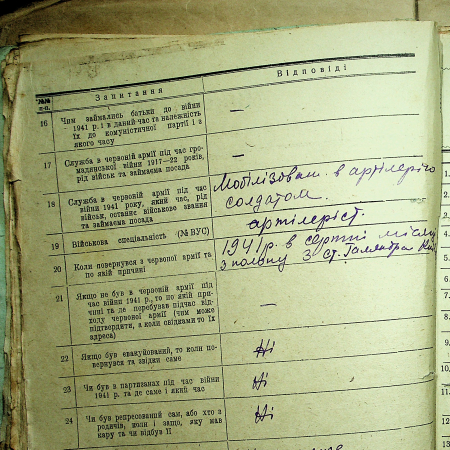 №№ п.п.
Запитання
Відповіді
16 Чим займались батьки до війни
1941 р. і в даний час та належність
їх до комуністичної партії і з
якого часу
—
17 Служба в червоній армії під час гро-
мадянської війни 1917—22 років,
рід військ та займаєма посада
—
18 Служба в червоній армії під час
війни 1941 року, який час, рід
військ, останнє військове звання
та займаєма посада
Мобілізован в артілерію
солдатом.
19 Військова спеціальність (№ ВУС)
артілеріст.
20 Коли повернувся з червоної армії та
по якій причині
1941 р. в серпні місяці
з полону з ст.
21 Якщо не був в червоній армії під
час війни 1941 р., то по якій при-
чині та де перебував підчас від-
ходу червоної армії (чим може
підтвердити, а коли свідками то їх
адреса)
—
22 Якщо був евакуйований, то коли по-
вернувся та звідки саме
Ні
23 Чи був в партизанах під час війни
1941 р. та де саме і який час
Ні
24 Чи був репресований сам, або хто з
родичів, коли і защо, яку мав
кару та чи відбув її
Ні
1.
2.
3.
4.
5.
6.
7.
8.
9.
10.
11.
12.
13.